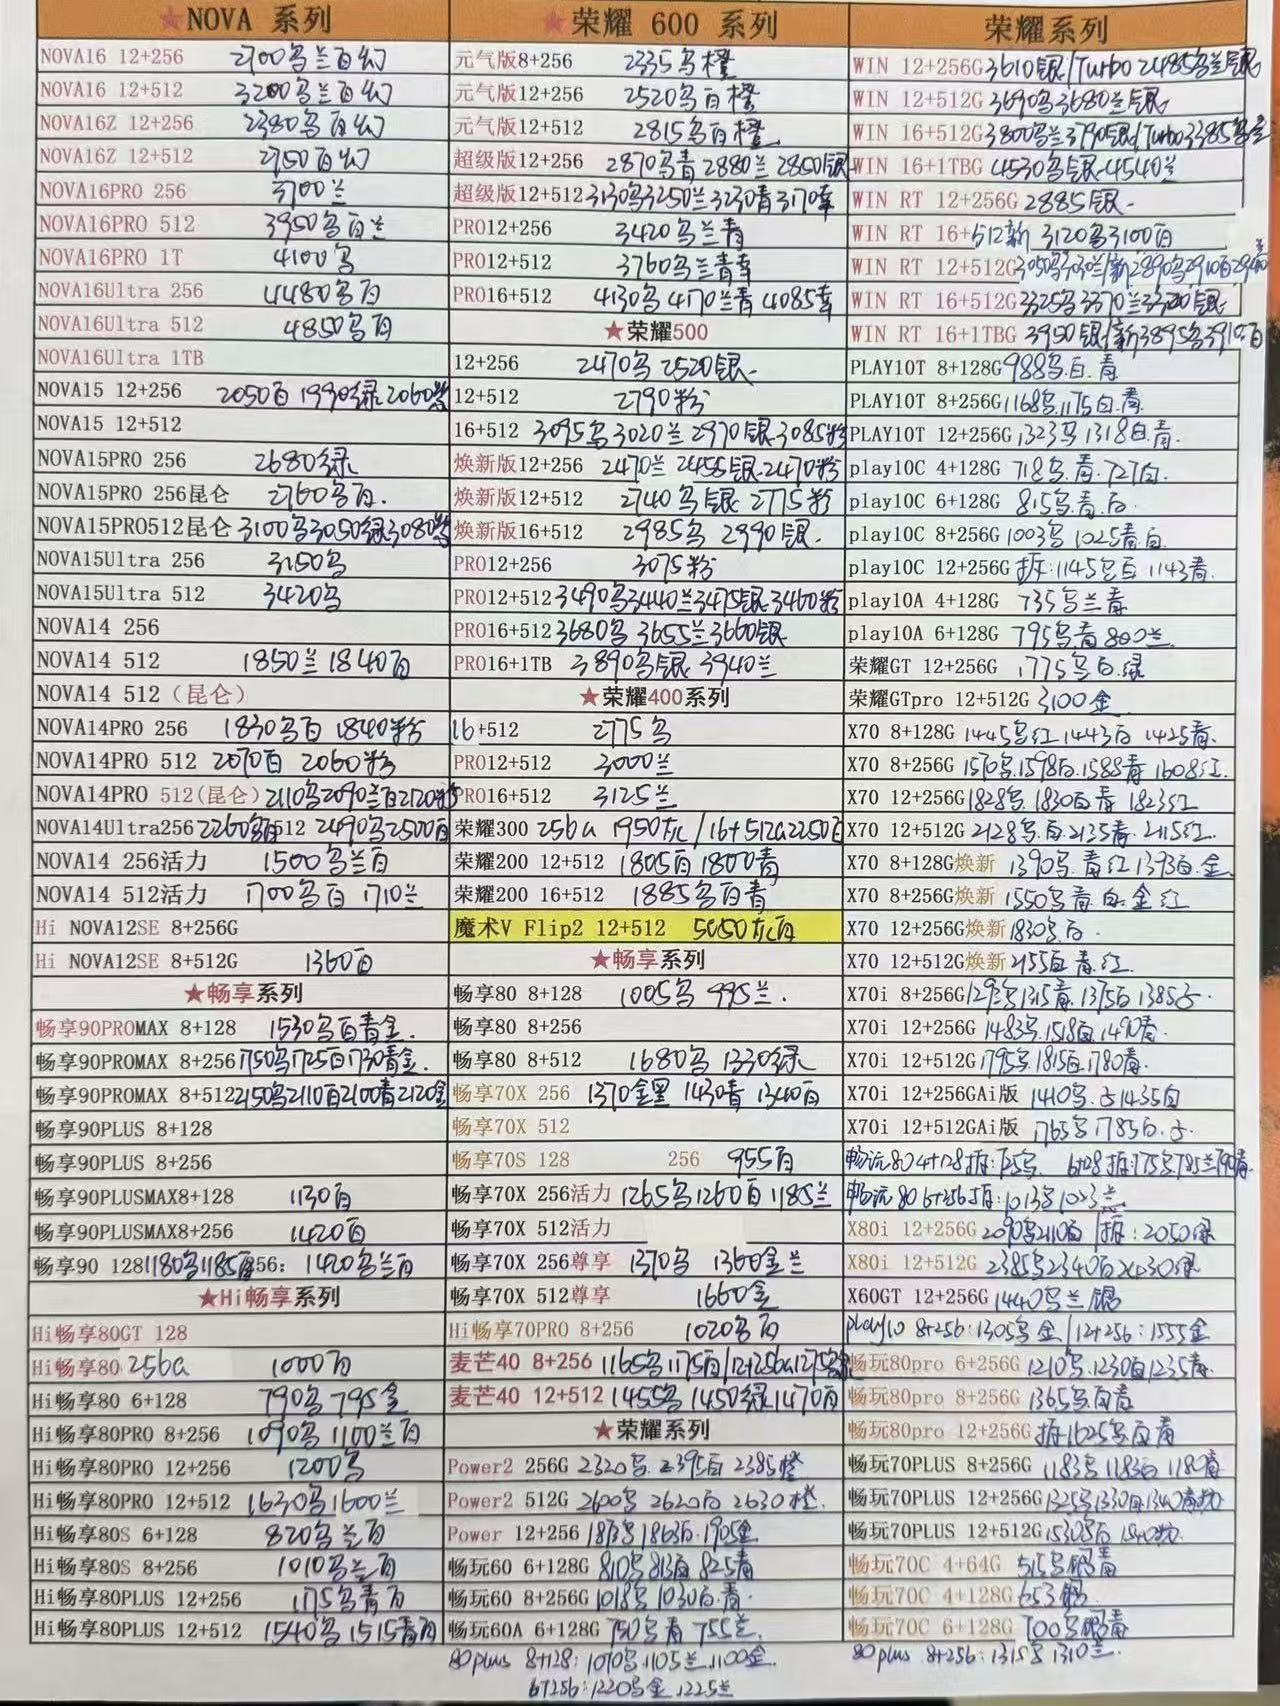 ★NOVA 系列
NOVA16 12+256 2700乌兰白幻
NOVA16 12+512 3200乌兰白幻
NOVA16Z 12+256 2380乌白幻
NOVA16Z 12+512 2750白幻
NOVA16PRO 256 3700兰
NOVA16PRO 512 3950乌白兰
NOVA16PRO 1T 4100乌
NOVA16Ultra 256 4480乌白
NOVA16Ultra 512 4850乌白
NOVA16Ultra 1TB
NOVA15 12+256 2050白 1990绿 2060粉
NOVA15 12+512
NOVA15PRO 256 2680绿
NOVA15PRO 256昆仑 2760乌白.
NOVA15PRO512昆仑 3100乌3050绿3080粉
NOVA15Ultra 256 3150乌
NOVA15Ultra 512 3420乌
NOVA14 256
NOVA14 512 1850兰 1840白
NOVA14 512（昆仑）
NOVA14PRO 256 1830乌白 1840粉
NOVA14PRO 512 2070白 2060粉
NOVA14PRO 512(昆仑) 2110乌2090兰白2120粉
NOVA14Ultra256 2260乌白512 2490乌2500白
NOVA14 256活力 1500乌兰白
NOVA14 512活力 1700乌白 1710兰
Hi NOVA12SE 8+256G
Hi NOVA12SE 8+512G 1360白
★畅享系列
畅享90PROMAX 8+128 1530乌白青金.
畅享90PROMAX 8+256 1750乌1725白1730青金.
畅享90PROMAX 8+512 2150乌2110白2100青2120金
畅享90PLUS 8+128
畅享90PLUS 8+256
畅享90PLUSMAX8+128 1130白
畅享90PLUSMAX8+256 1420白
畅享90 128 1180乌1185白256: 1420乌兰白
★Hi畅享系列
Hi畅享80GT 128
Hi畅享80 256G 1000白
Hi畅享80 6+128 790乌 795金
Hi畅享80PRO 8+256 1090乌 1100兰白
Hi畅享80PRO 12+256 1200乌
Hi畅享80PRO 12+512 1630乌1600兰
Hi畅享80S 6+128 820乌兰白
Hi畅享80S 8+256 1010乌兰白
Hi畅享80PLUS 12+256 1175乌青白
Hi畅享80PLUS 12+512 1540乌1515青白
★荣耀 600 系列
元气版8+256 2335乌橙
元气版12+256 2520乌白橙
元气版12+512 2815乌白橙
超级版12+256 2870乌青 2880兰 2850银
超级版12+512 3130乌3250兰3230青3170幸
PRO12+256 3420乌兰青
PRO12+512 3760乌兰青幸
PRO16+512 4130乌 4170兰青 4085幸
★荣耀500
12+256 2470乌 2520银.
12+512 2790粉
16+512 3095乌3020兰2970银3085粉
焕新版12+256 2470兰 2455银.2470粉
焕新版12+512 2740乌银 2775粉
焕新版16+512 2985乌 2990银.
PRO12+256 3075粉
PRO12+512 3490乌3440兰3475银3460粉
PRO16+512 3680乌 3655兰3660银
PRO16+1TB 3890乌银 3940兰
★荣耀400系列
16+512 2775乌
PRO12+512 3000兰
PRO16+512 3125兰
荣耀300 256G 1950灰/16+512G2250白
荣耀200 12+512 1805白1800青
荣耀200 16+512 1885乌白青
魔术V Flip2 12+512 5050灰白
★畅享系列
畅享80 8+128 1005乌 995兰.
畅享80 8+256
畅享80 8+512 1680乌 1330绿
畅享70X 256 1370金黑 1430青 1340白
畅享70X 512
畅享70S 128 256 955白
畅享70X 256活力 1265乌1260白1185兰
畅享70X 512活力
畅享70X 256尊享 1370乌 1360金兰
畅享70X 512尊享 1660金
Hi畅享70PRO 8+256 1020乌白
麦芒40 8+256 1165乌1175白/12+256G1275
麦芒40 12+512 1455乌 1450绿1470白
★荣耀系列
Power2 256G 2320乌 2395白 2385橙
Power2 512G 2600乌 2620白 2630橙.
Power 12+256 1863白 1905金
畅玩60 6+128G 810乌813白825青
畅玩60 8+256G 1018乌1030白.青.
畅玩60A 6+128G 750乌青 755兰.
80plus 8+128: 1070乌1105兰.1100金.
6+256:1220乌金1225兰
荣耀系列
WIN 12+256G 3610银/Turbo2485乌兰银
WIN 12+512G 3690乌3680兰银
WIN 16+512G 3800乌兰3790银/Turbo3385乌金
WIN 16+1TBG 4530乌银.4540兰
WIN RT 12+256G 2885银.
WIN RT 16+512新 3120乌3100白
WIN RT 12+512G 3050乌3030兰/新2890乌2910白
WIN RT 16+512G 3325乌3370兰3320银
WIN RT 16+1TBG 3950银/新3895乌3910白
PLAY10T 8+128G 988乌.白.青
PLAY10T 8+256G 1168乌.1175白.青.
PLAY10T 12+256G 1323乌1318白.青.
play10C 4+128G 718乌.青.727白.
play10C 6+128G 815乌.青.白
play10C 8+256G 1003乌1025青.白
play10C 12+256G 拆:1145乌白 1143青.
play10A 4+128G 735乌兰青
play10A 6+128G 795乌青800兰
荣耀GT 12+256G 1775乌白.绿
荣耀GTpro 12+512G 3100金
X70 8+128G 1445乌红1443白 1425青.
X70 8+256G 1570乌.1598白.1588青 1608红.
X70 12+256G 1828乌.1830白青 1823红
X70 12+512G 2128乌.白.2135青.2115红.
X70 8+128G焕新 1390乌.青红1393白.金
X70 8+256G焕新 1550乌青.白.金.红
X70 12+256G焕新 1830乌白.
X70 12+512G焕新 2155白青.红.
X70i 8+256G 1315青.1375白1385
X70i 12+256G 1483乌.1518白.1490青.
X70i 12+512G 1795乌.1815白.1780青.
X70i 12+256GAi版 1410乌. 1435白
X70i 12+512GAi版 1765乌1785白.
畅玩80 4+128拆:725乌. 6+128拆:775乌785兰790青
畅玩80 6+256拆:1013乌1023兰
X80i 12+256G 2090乌2110白/拆:2050绿
X80i 12+512G 2385乌2340白2430绿
X60GT 12+256G 1440乌兰银
play10 8+256:1305乌金/12+256:1555金
畅玩80pro 6+256G 1210乌.1230白1235青.
畅玩80pro 8+256G 1365乌.白青
畅玩80pro 12+256G 拆1625乌白青
畅玩70PLUS 8+256G 1183乌1183白1180青
畅玩70PLUS 12+256G 1325乌1330白1340青
畅玩70PLUS 12+512G 1530乌白 1540
畅玩70C 4+64G 515乌银青
畅玩70C 4+128G 653银
畅玩70C 6+128G 700乌银青
80plus 8+256:1315乌1310兰.